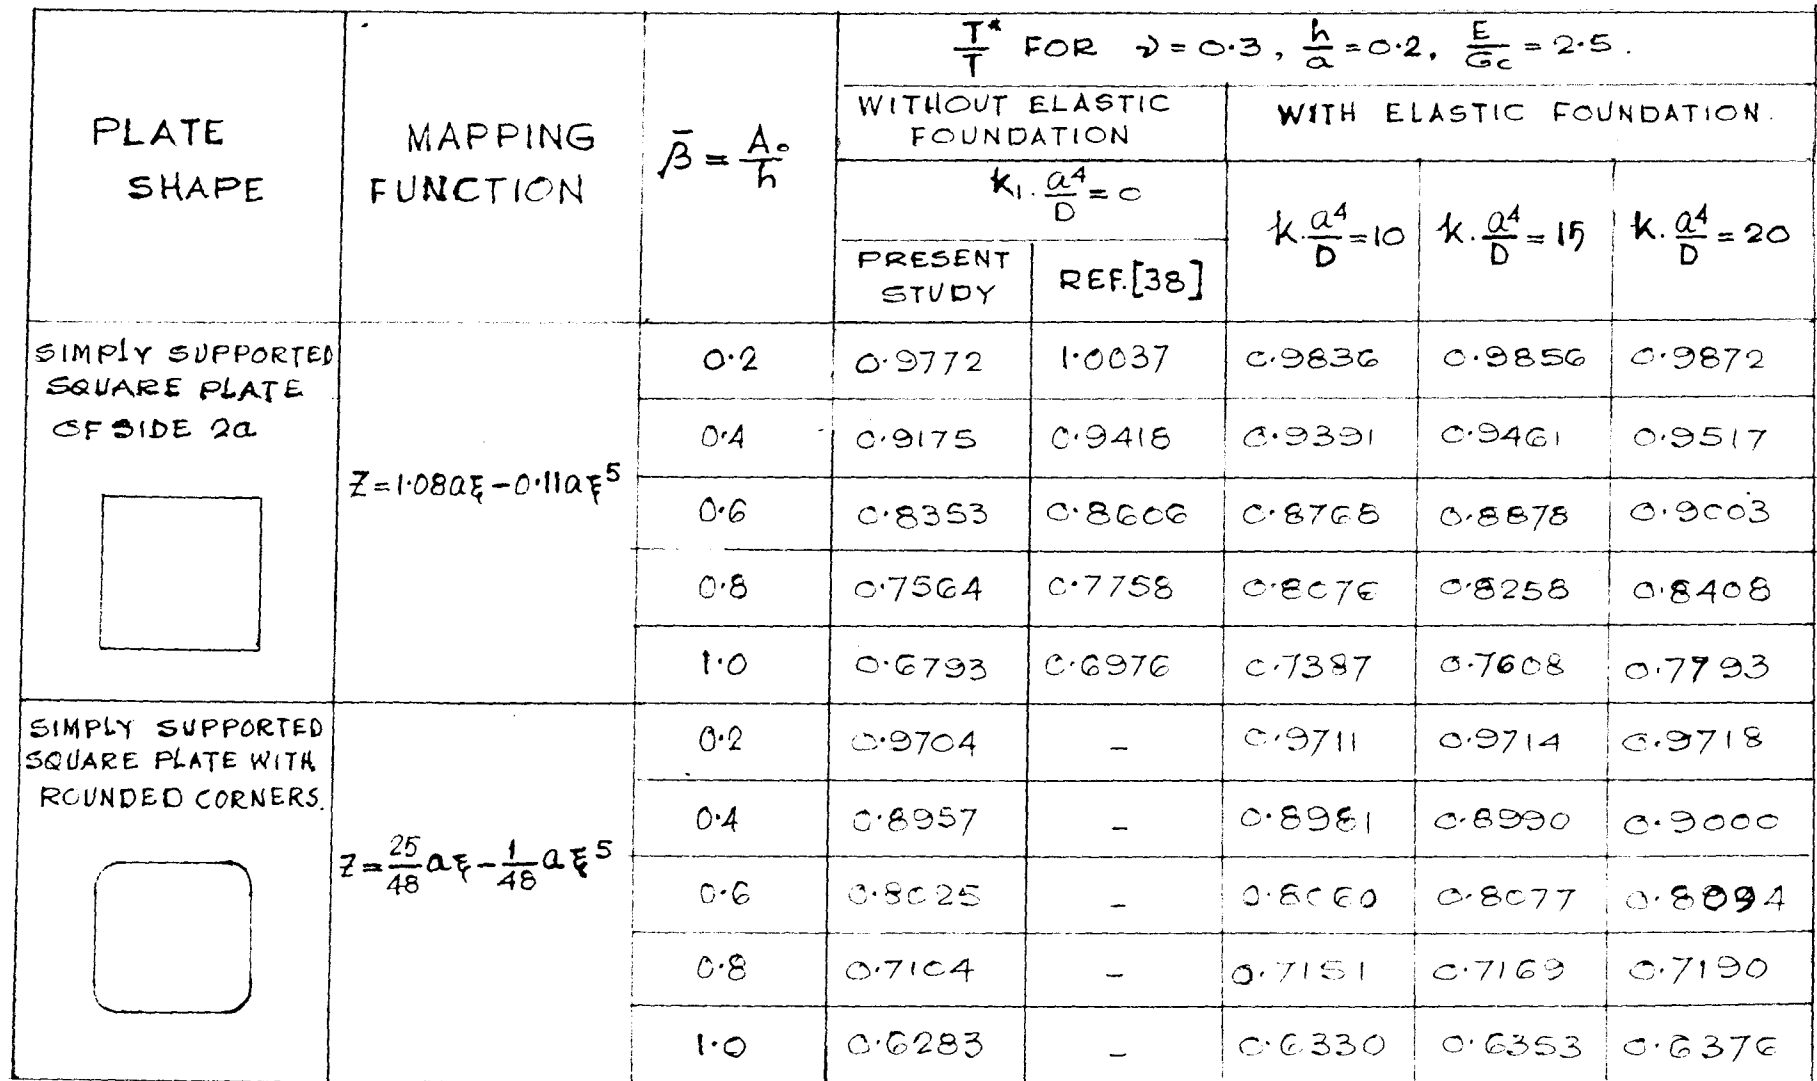 T*/T FOR ν = 0.3, h/a = 0.2, E/Gc = 2.5.
PLATE
SHAPE
MAPPING
FUNCTION
β̄ = A₀/h
WITHOUT ELASTIC
FOUNDATION
WITH ELASTIC FOUNDATION.
K₁. a⁴/D = 0
PRESENT
STUDY
REF.[38]
K. a⁴/D = 10
K. a⁴/D = 15
K. a⁴/D = 20
SIMPLY SUPPORTED
SQUARE PLATE
OF SIDE 2a
Z = 1.08aξ - 0.11aξ⁵
0.2 0.9772 1.0037 0.9836 0.9856 0.9872
0.4 0.9175 0.9418 0.9391 0.9461 0.9517
0.6 0.8353 0.8606 0.8768 0.8878 0.9003
0.8 0.7564 0.7758 0.8076 0.8258 0.8408
1.0 0.6793 0.6976 0.7387 0.7608 0.7793
SIMPLY SUPPORTED
SQUARE PLATE WITH
ROUNDED CORNERS.
Z = 25/48 aξ - 1/48 aξ⁵
0.2 0.9704 - 0.9711 0.9714 0.9718
0.4 0.8957 - 0.8981 0.8990 0.9000
0.6 0.8025 - 0.8060 0.8077 0.8094
0.8 0.7104 - 0.7151 0.7169 0.7190
1.0 0.6283 - 0.6330 0.6353 0.6376